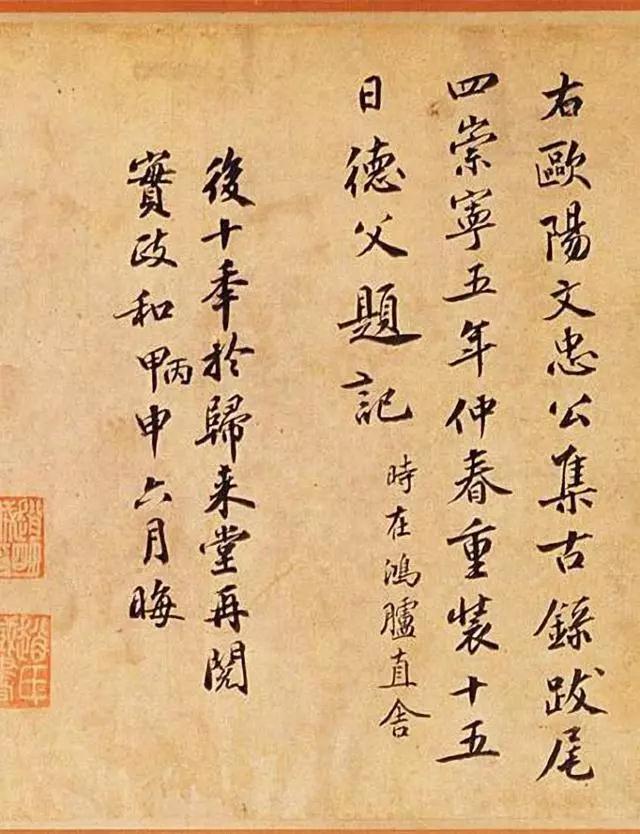 右歐陽文忠公集古錄跋尾
四崇寧五年仲春重裝十五
日德父題記
時在鴻臚直舍
後十秊於歸来堂再閱
實政和甲丙申六月晦